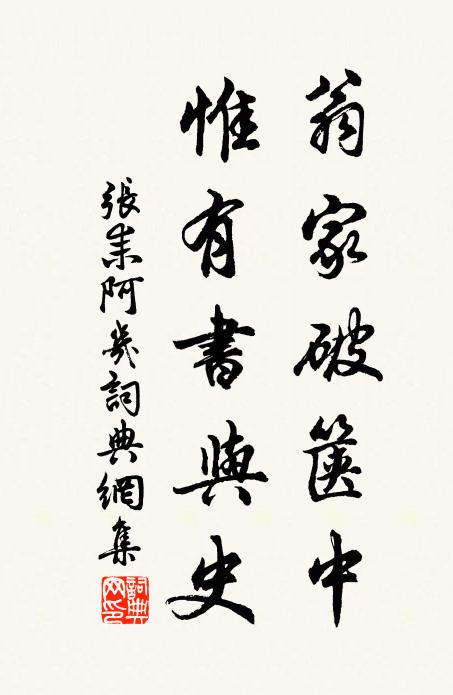 翁家破篋中
惟有書與史
張耒阿幾詞典網集
詞典網印